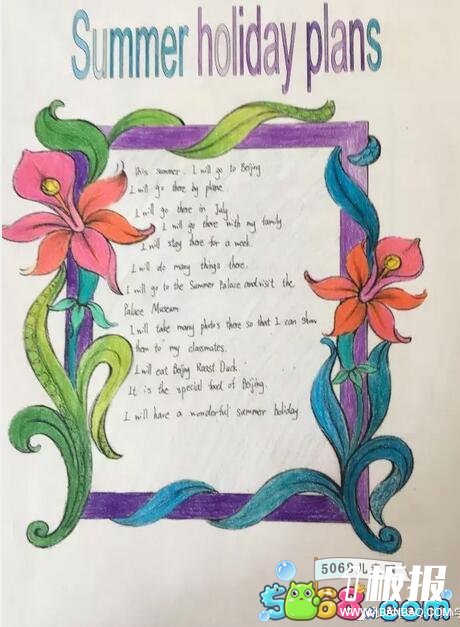 Summer holiday plans
This summer. I will go to Beijing.
I will go there by plane.
I will go there in July
I will go there with my family
I will stay there for a week.
I will do many things there.
I will go to the Summer Palace and visit the
Palace Museum
I will take many photos there so that I can show
them to my classmates.
I will eat Beijing Roast Duck.
It is the special food of Beijing.
I will have a wonderful summer holiday.
5068儿
板报
5068.com